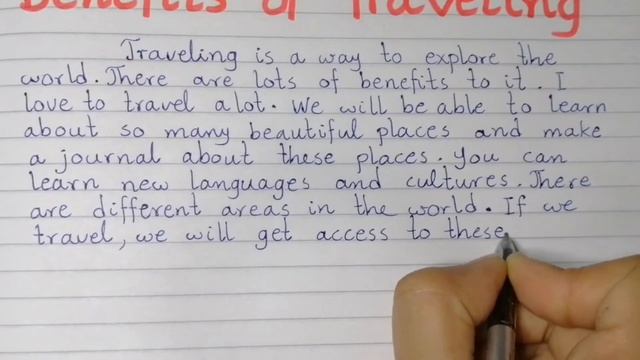 Benefits of Traveling
Traveling is a way to explore the
world. There are lots of benefits to it. I
love to travel a lot. We will be able to learn
about so many beautiful places and make
a journal about these places. You can
learn new languages and cultures. There
are different areas in the world. If we
travel, we will get access to these